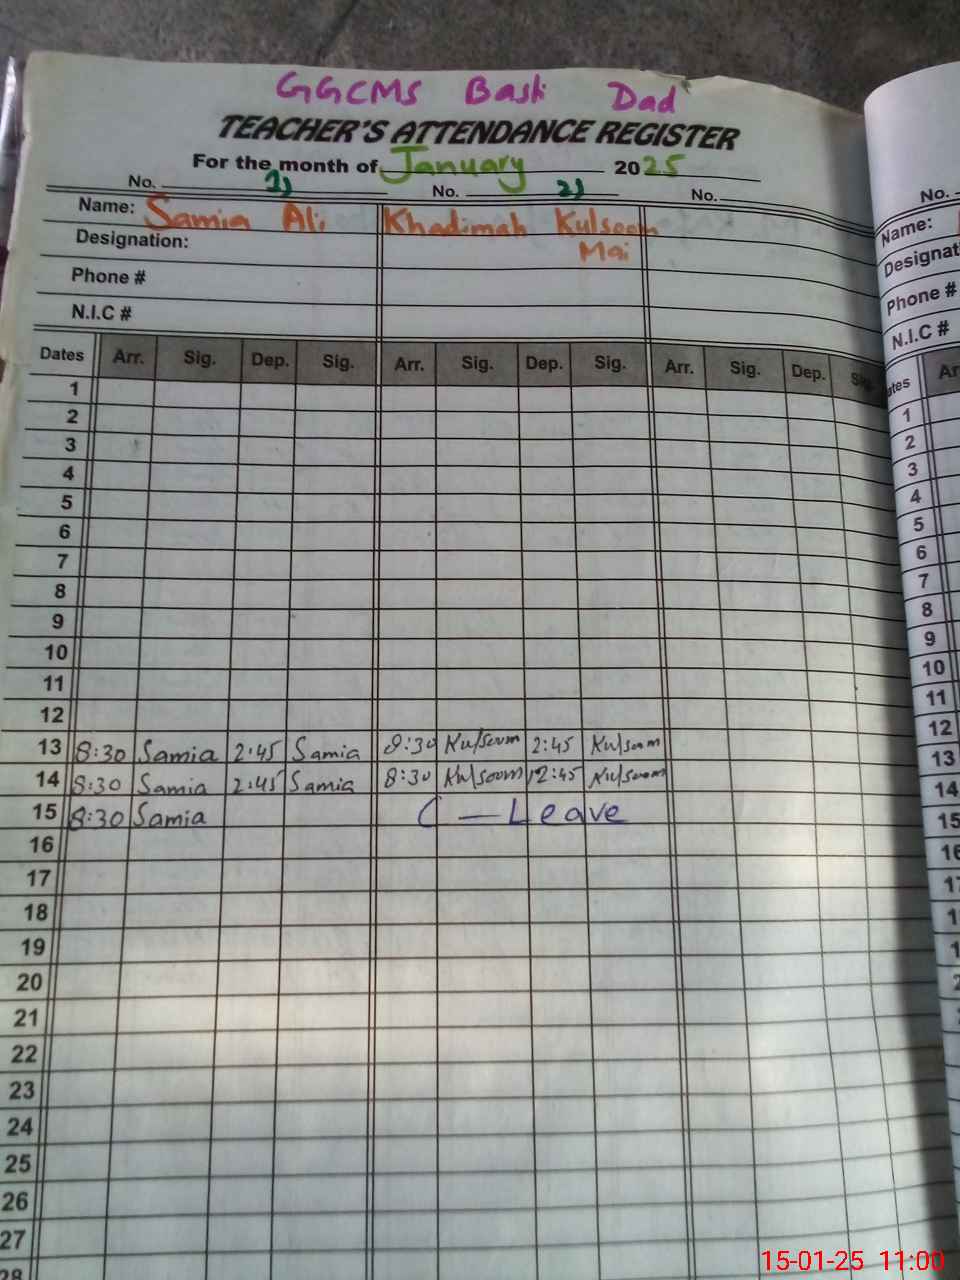 GGCMS Basti Dad
TEACHER'S ATTENDANCE REGISTER
For the month of January 2025
No. 1) No. 2) No.
Name: Samia Ali Khadimah Kulsoom
Mai
Designation:
Phone #
N.I.C #
Dates Arr. Sig. Dep. Sig. Arr. Sig. Dep. Sig. Arr. Sig. Dep. Sig.
1
2
3
4
5
6
7
8
9
10
11
12
13 8:30 Samia 2:45 Samia 8:30 Kulsoom 2:45 Kulsoom
14 8:30 Samia 2:45 Samia 8:30 Kulsoom 12:45 Kulsoom
15 8:30 Samia C — Leave
16
17
18
19
20
21
22
23
24
25
26
27
28
No.
Name:
Phone #
N.I.C #
1
2
3
4
5
6
7
8
9
10
11
12
13
14
15
16
15-01-25 11:00